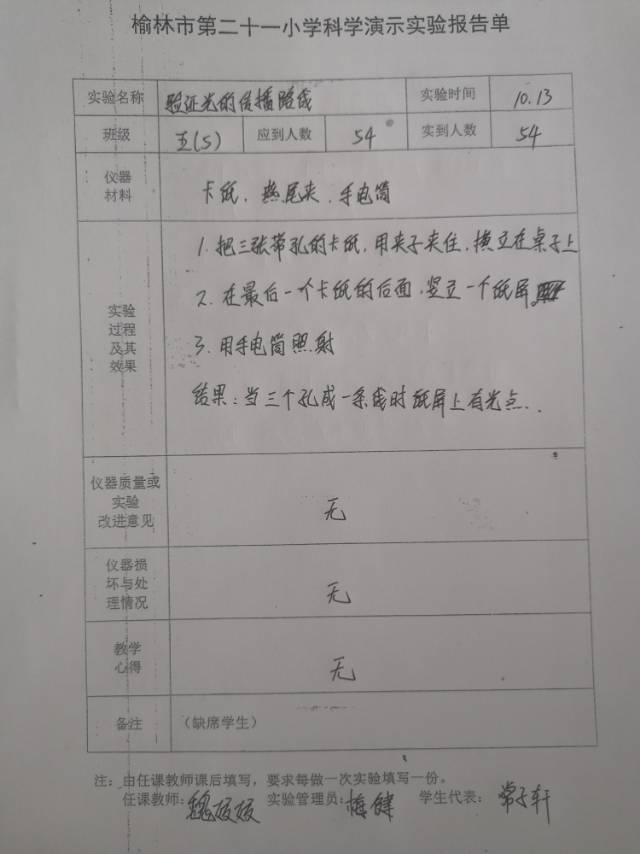 榆林市第二十一小学科学演示实验报告单
实验名称 验证光的传播路线 实验时间 10.13
班级 五(5) 应到人数 54 实到人数 54
仪器
材料
卡纸、燕尾夹、手电筒
实验
过程
及其
效果
1. 把三张带孔的卡纸,用夹子夹住,横立在桌子上
2. 在最后一个卡纸的后面,竖立一个纸屏
3. 用手电筒照射
结果:当三个孔成一条线时纸屏上有光点..
仪器质量或
实验
改进意见
无
仪器损
坏与处
理情况
无
教学
心得
无
备注 (缺席学生)
注:由任课教师课后填写,要求每做一次实验填写一份。
任课教师:魏媛媛 实验管理员:梅健 学生代表:常子轩